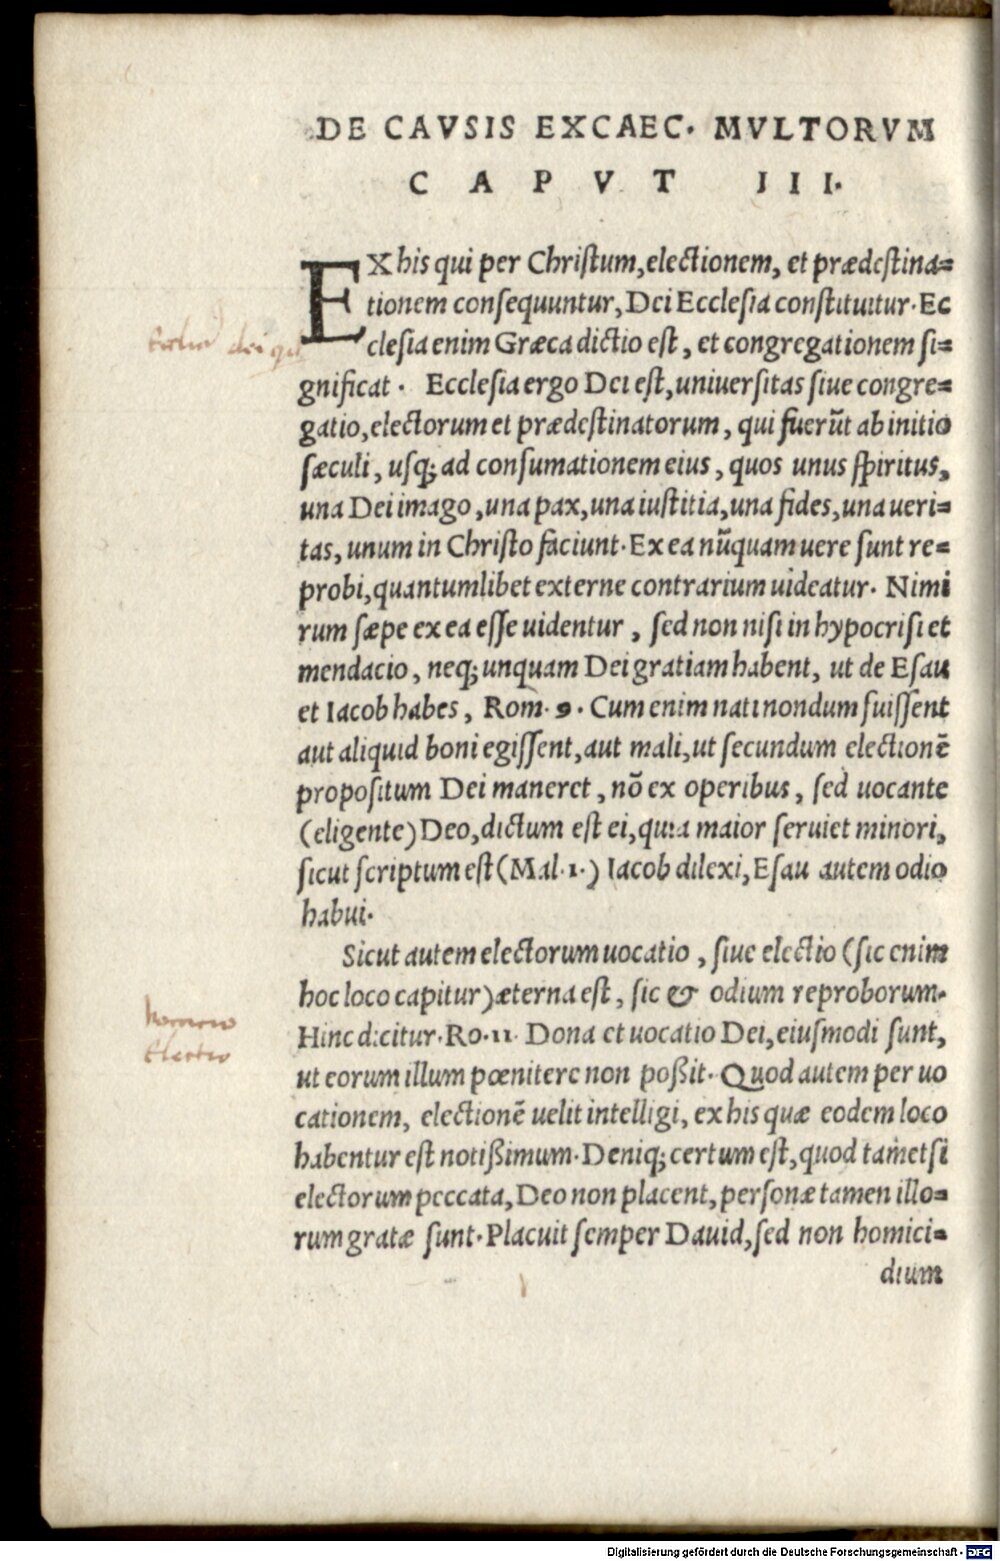 DE CAVSIS EXCAEC. MVLTORVM
CAPVT III.
EX his qui per Christum, electionem, et prædestina=
tionem consequuntur, Dei Ecclesia constituitur. Ec
clesia enim Græca dictio est, et congregationem si=
gnificat. Ecclesia ergo Dei est, uniuersitas siue congre=
gatio, electorum et prædestinatorum, qui fuerūt ab initio
sæculi, usq; ad consumationem eius, quos unus spiritus,
una Dei imago, una pax, una iustitia, una fides, una ueri=
tas, unum in Christo faciunt. Ex ea nūquam uere sunt re=
probi, quantumlibet externe contrarium uideatur. Nimi
rum sæpe ex ea esse uidentur, sed non nisi in hypocrisi et
mendacio, neq; unquam Dei gratiam habent, ut de Esau
et Iacob habes, Rom. 9. Cum enim nati nondum fuissent
aut aliquid boni egissent, aut mali, ut secundum electionē
propositum Dei maneret, nō ex operibus, sed uocante
(eligente) Deo, dictum est ei, quia maior seruiet minori,
sicut scriptum est (Mal. 1.) Iacob dilexi, Esau autem odio
habui.
Sicut autem electorum uocatio, siue electio (sic enim
hoc loco capitur) æterna est, sic & odium reproborum.
Hinc dicitur. Ro. 11. Dona et uocatio Dei, eiusmodi sunt,
ut eorum illum pœnitere non poßit. Quod autem per uo
cationem, electionē uelit intelligi, ex his quæ eodem loco
habentur est notißimum. Deniq; certum est, quod tametsi
electorum peccata, Deo non placent, personæ tamen illo=
rum gratæ sunt. Placuit semper Dauid, sed non homici=
dium
dei
Electio
Digitalisierung gefördert durch die Deutsche Forschungsgemeinschaft - DFG